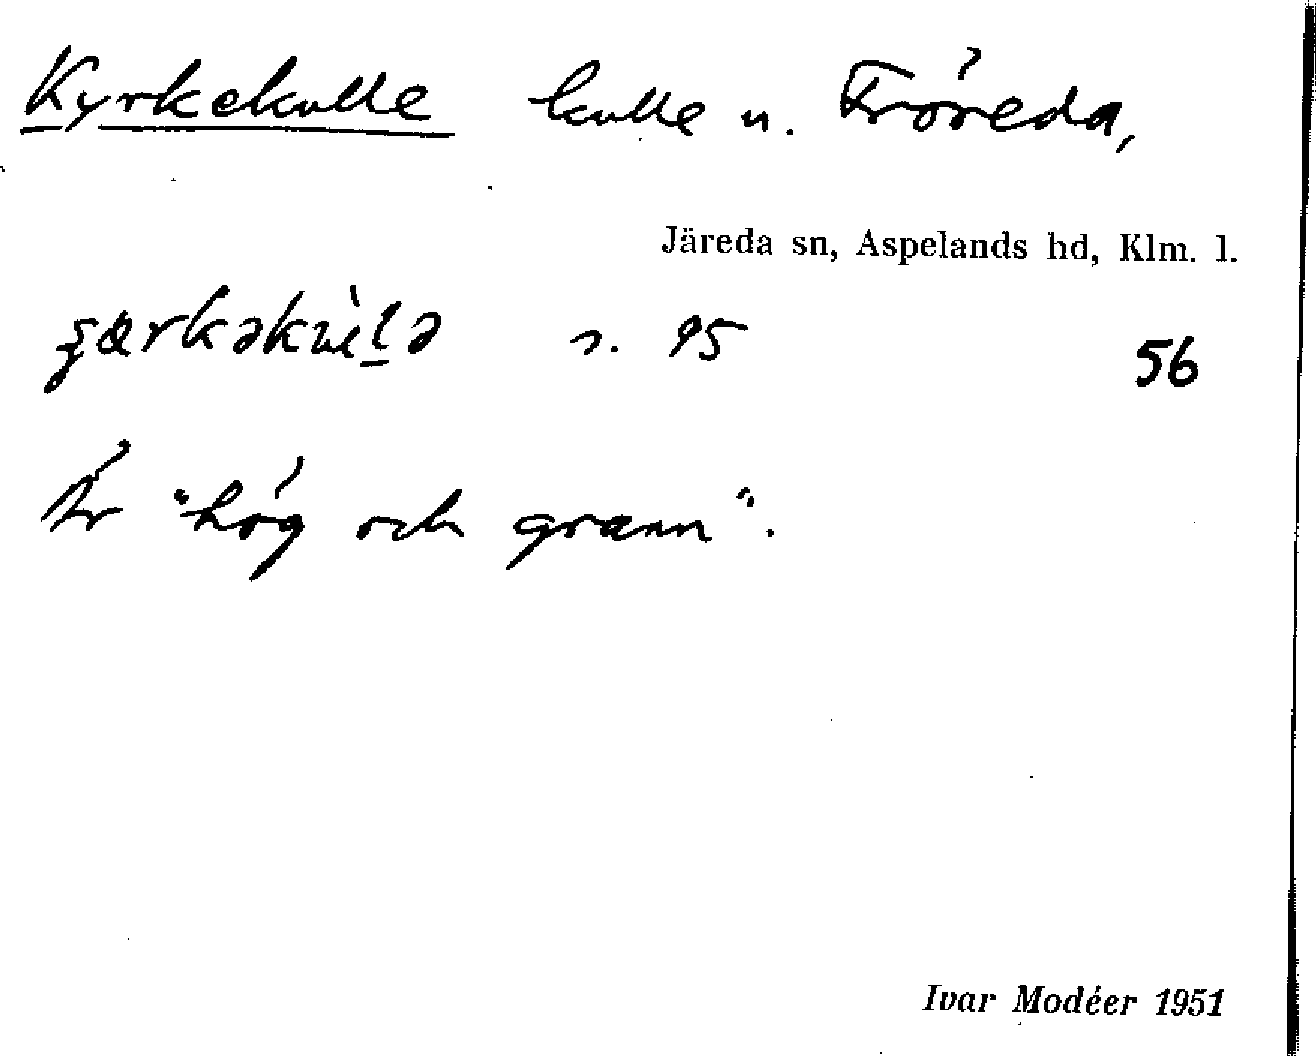 Kyrkekulle kulle n. Fröreda,
Järeda sn, Aspelands hd, Klm. l.
s. 95 56
Är "hög och grann".
Ivar Modéer 1951